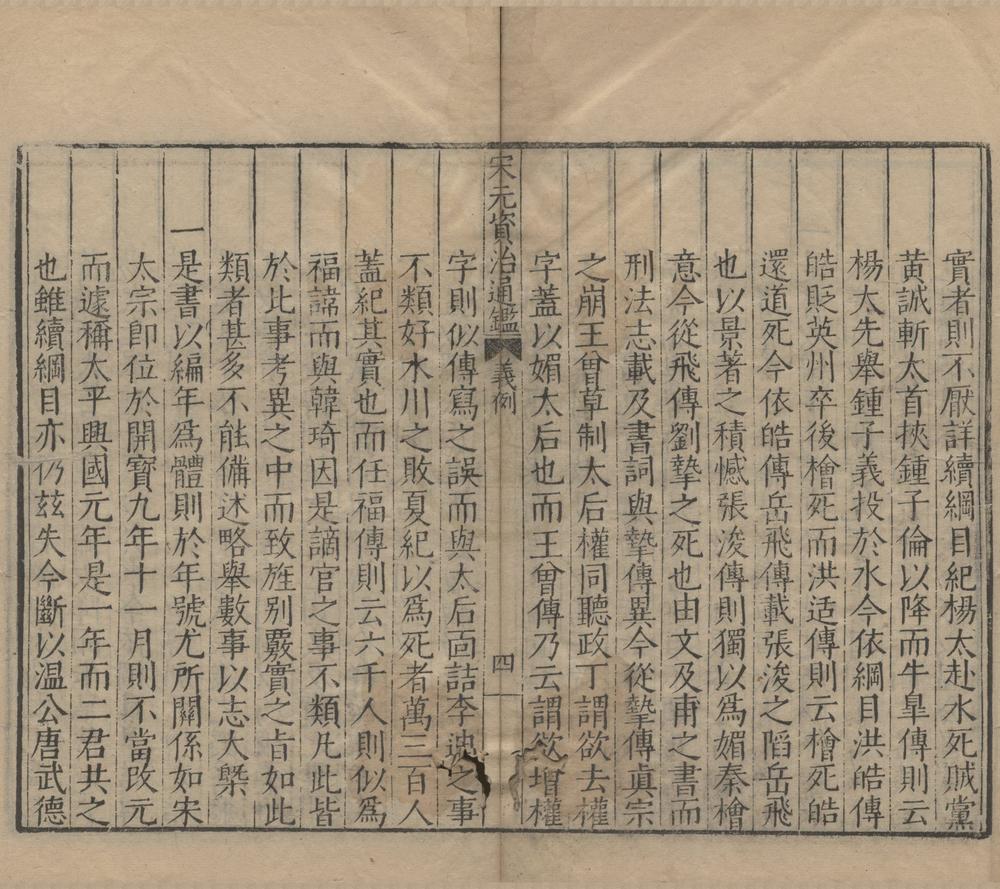 實者則不厭詳續綱目紀楊太赴水死賊黨
黃誠斬太首挾鍾子倫以降而牛皐傳則云
楊太先舉鍾子義投於水今依綱目洪皓傳
皓貶英州卒後檜死而洪适傳則云檜死皓
還道死今依皓傳岳飛傳載張浚之䧟岳飛
也以景著之積憾張浚傳則獨以爲媚秦檜
意今從飛傳劉摯之死也由文及甫之書而
刑法志載及書詞與摯傳異今從摯傳眞宗
之崩王曾草制太后權同聽政丁謂欲去權
字蓋以媚太后也而王曾傳乃云謂欲增權
宋元資治通鑑
義例
四
字則似傳寫之誤而與太后面詰李迪之事
不類好水川之敗夏紀以爲死者萬三百人
蓋紀其實也而任福傳則云六千人則似爲
福諱而與韓琦因是謫官之事不類凡此皆
於比事考異之中而致旌别覈實之㫖如此
類者甚多不能備述略舉數事以志大槩
一是書以編年爲體則於年號尤所關係如宋
太宗卽位於開寶九年十一月則不當改元
而遽稱太平興國元年是一年而二君共之
也雖續綱目亦仍茲失今斷以温公唐武德